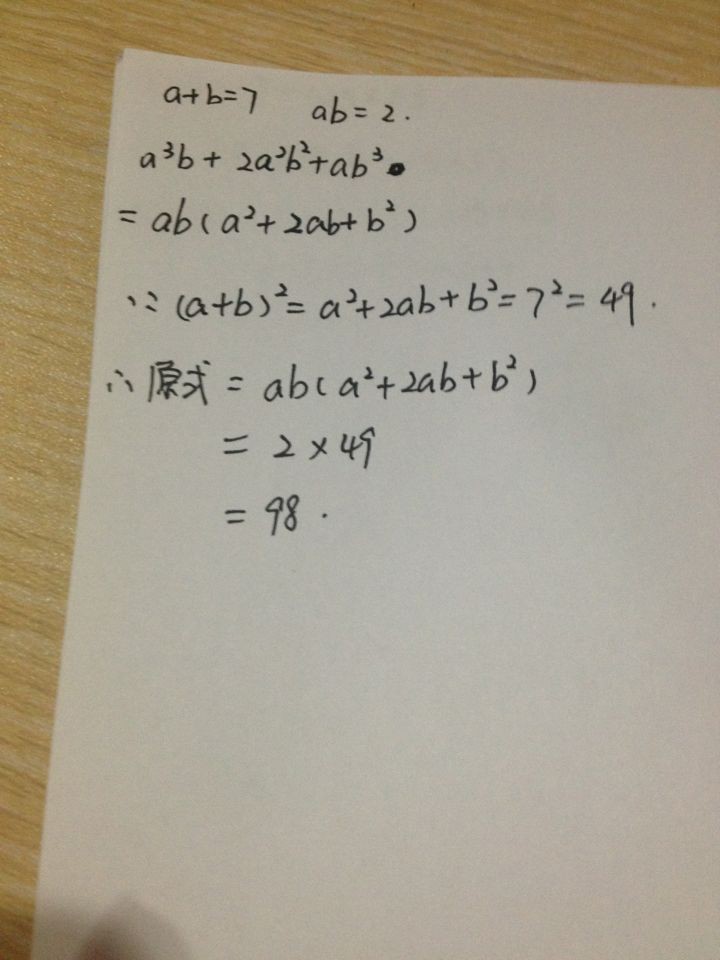 a+b=7 ab=2.
a³b+2a²b²+ab³.
=ab(a²+2ab+b²)
∵(a+b)²=a²+2ab+b²=7²=49.
∴原式=ab(a²+2ab+b²)
=2×49
=98.